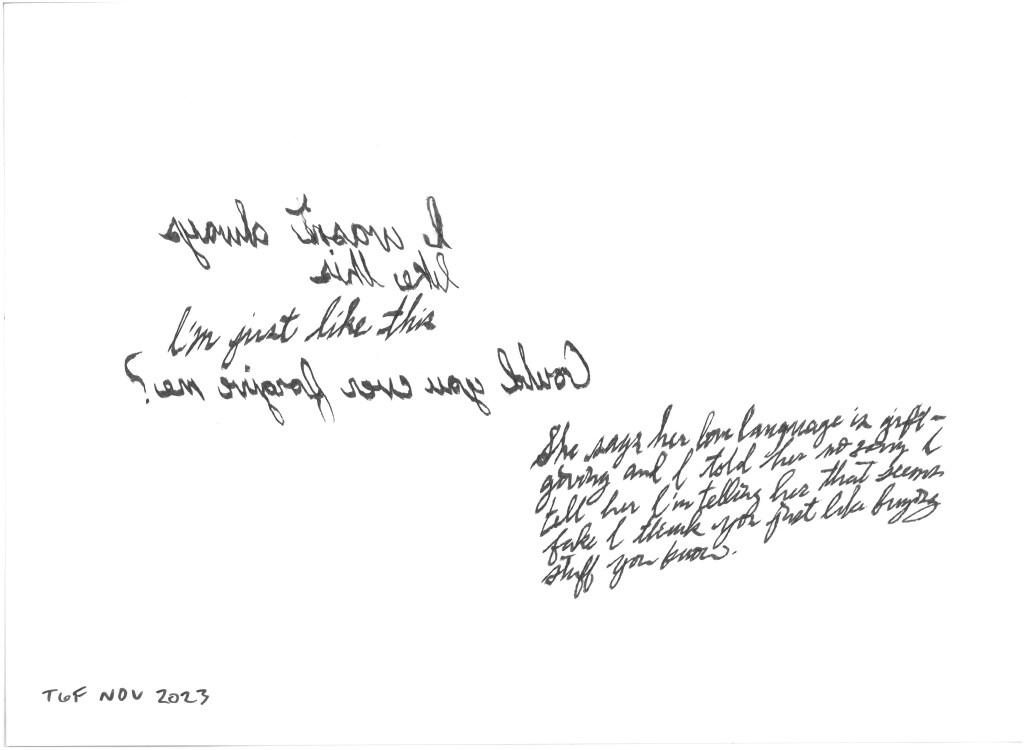 I wasn't always
like this
I'm just like this
Could you ever forgive me?
She says her love language is gift-
giving and I told her no sorry I
tell her I'm telling her that seems
fake I think you just like buying
stuff you know.
TGF NOV 2023